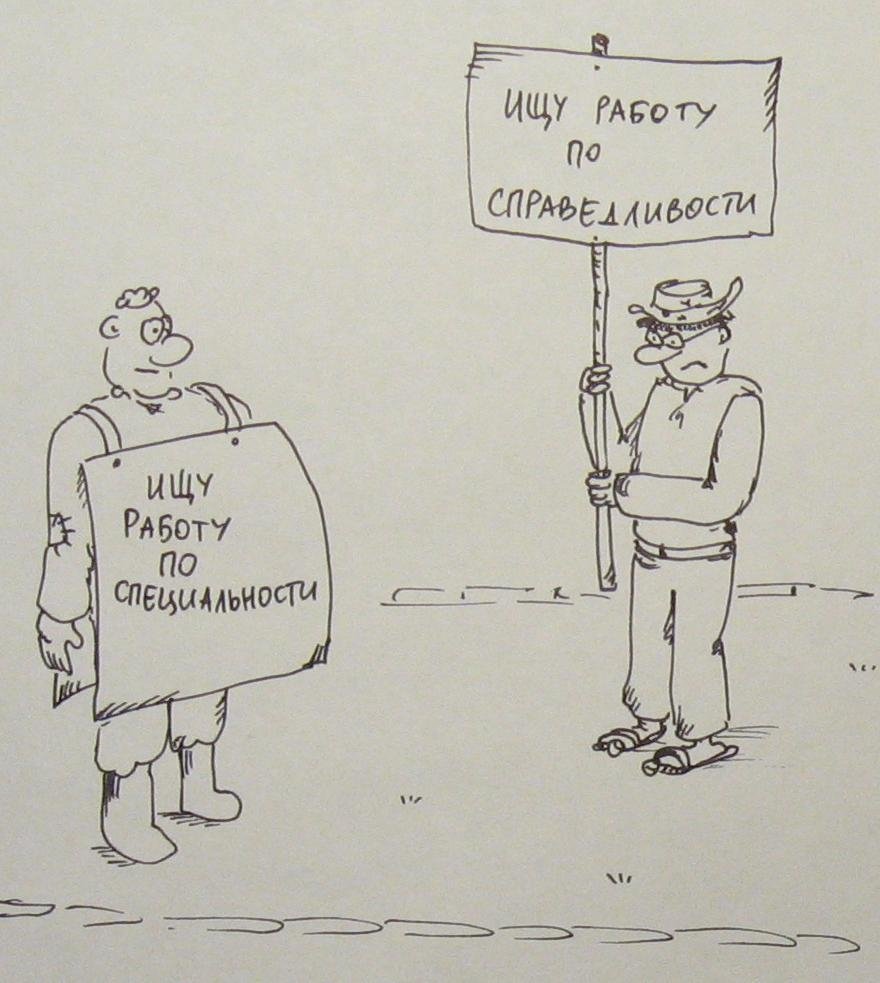 ИЩУ РАБОТУ
ПО
СПРАВЕДЛИВОСТИ
ИЩУ
РАБОТУ
ПО
СПЕЦИАЛЬНОСТИ